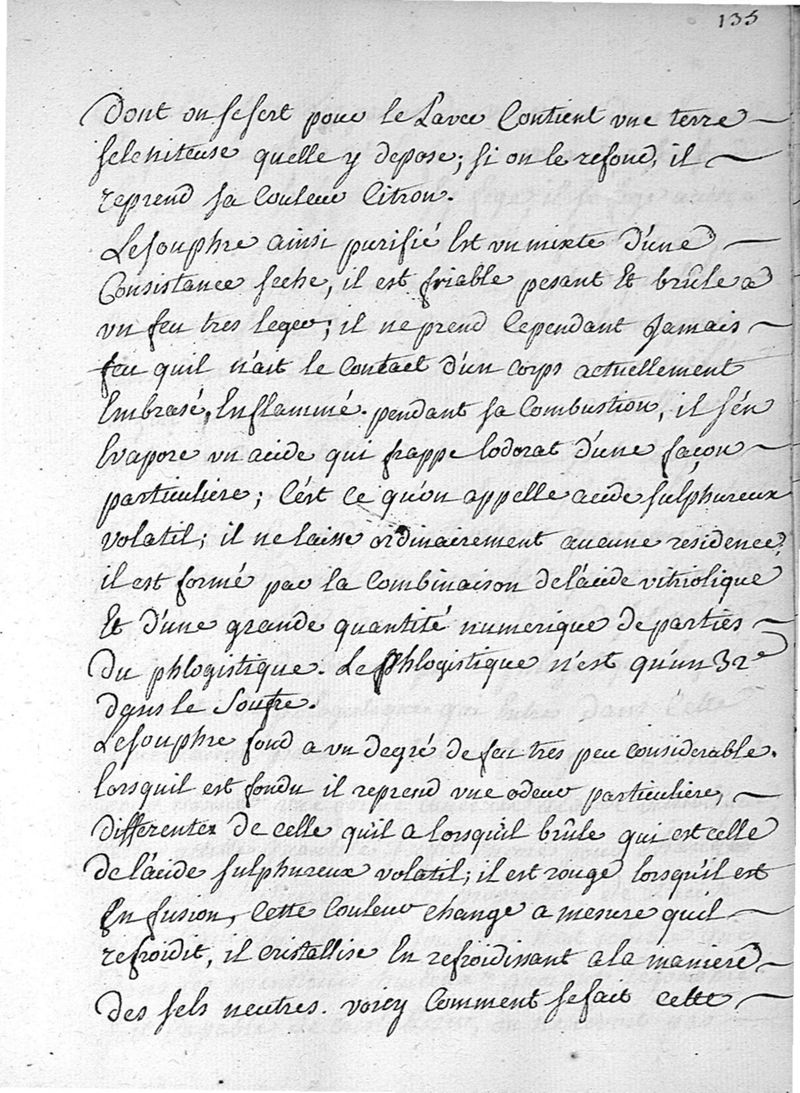 135
Dont on se sert pour le Laver Contient une terre
seleniteuse quelle y depose; si on le refond, il
reprend sa Couleur Citron.
Le souphre ainsi purifié Est un mixte d'une
Consistance seche, il est friable pesant Et brûle a
un feu tres leger; il ne prend Cependant Jamais
feu quil n'ait le Contact d'un corps actuellement
Embrasé, Enflammé. pendant sa Combustion, il s'én
Evapore un acide qui frappe lodorat d'une façon
particuliere; C'ést Ce qu'on appelle acide sulphureux
volatil; il ne laisse ordinairement aucune residence,
il est formé par la Combinaison de l'ácide vitriolique
Et d'une grande quantité numerique de parties
Du phlogistique. Le Phlogistique n'est qu'un 32e
dans le Soufre.
Le souphre fond a un degré de feu tres peu considerable.
Lorsquil est fondu il reprend une odeur particuliere,
differente de celle qu'il a lorsqu'il brûle qui est celle
de l'ácide sulphureux volatil; il est rouge lorsqu'il est
En fusion, Cette Couleur change a mesure quil
refroidit, il cristallise En refroidissant a la maniere
Des sels neutres. voicy Comment se fait cette